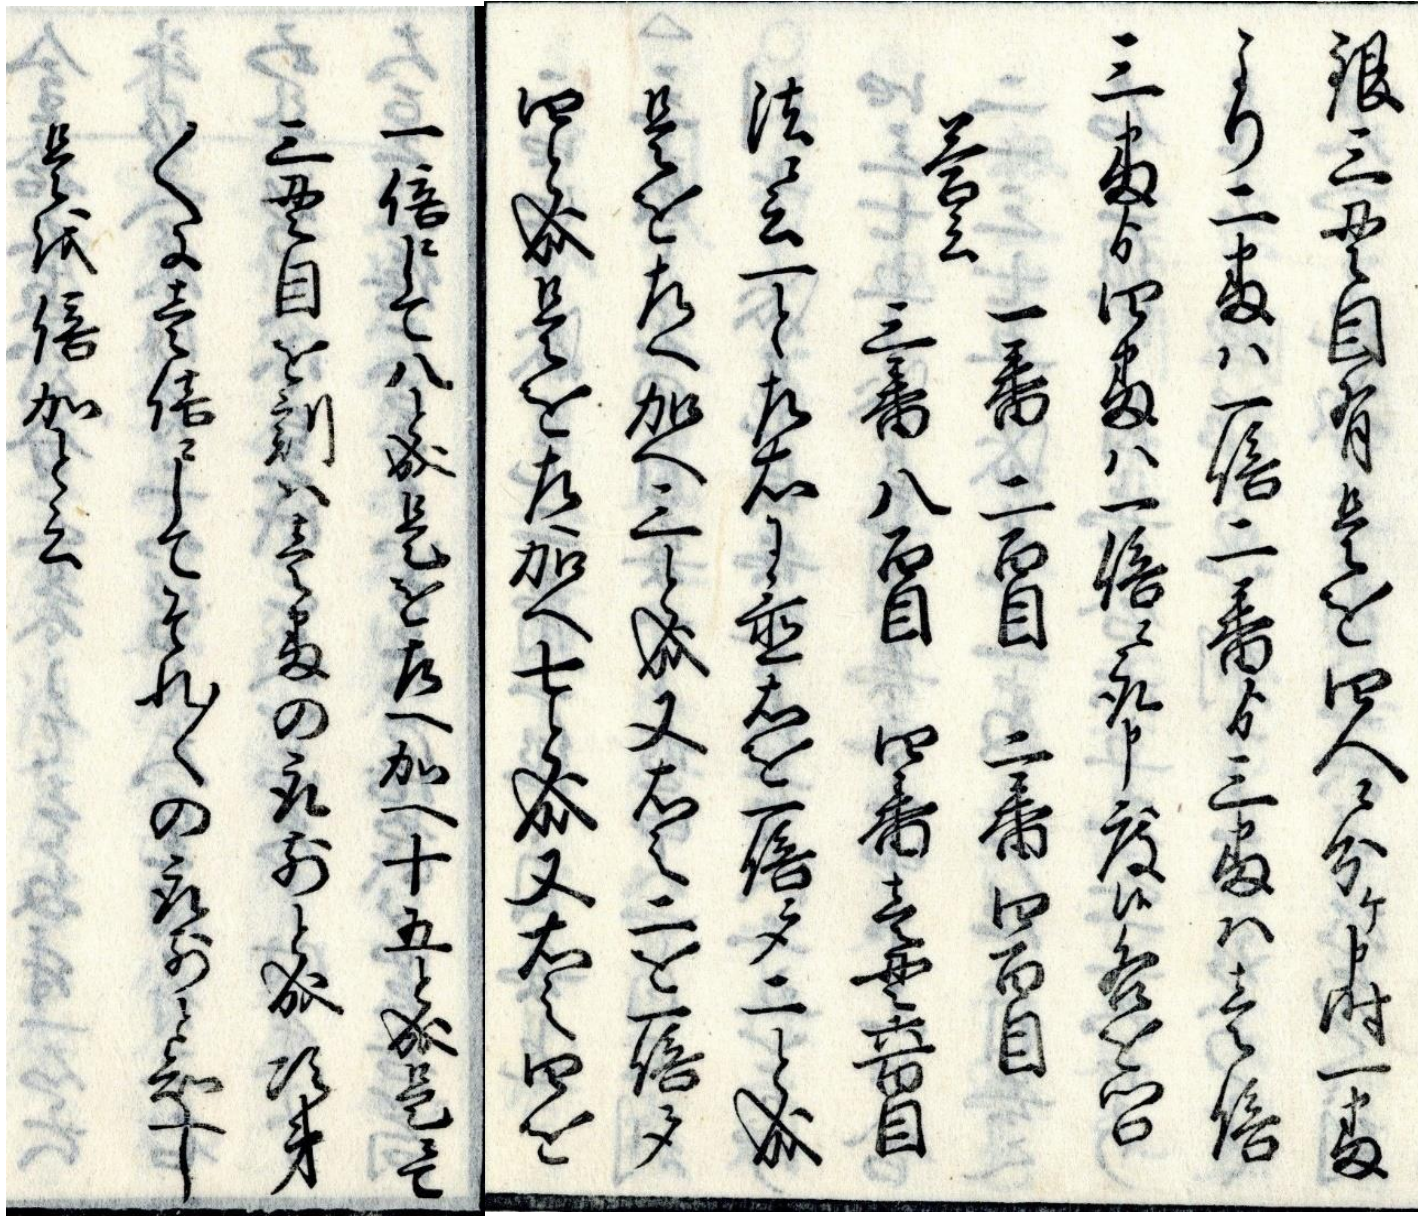 銀三貫目有是を四人ニ分ケ申時一番
より二番ハ一倍二番ゟ三番ハ壱倍
三番ゟ四番ハ一倍ニ取申度候各を問
答云
一番 二百目 二番 四百目
三番 八百目 四番 壱貫六百目
法ニ云一と左右に並右を一倍〆二と成
是を左へ加へ三と成又右之二を一倍〆
四と成是を左へ加へ七と成又右之四を
一倍にして八と成是を左へ加へ十五と成是ニて
三貫目を割ハ壱番の取前と成次第
〱に壱倍ニしてそれ〱の取前と知べし
是を倍加と云